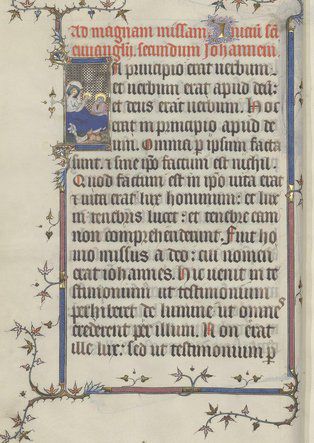 Ad magnam missam Iniciū sā
euuangĺij secundum Johannem
In principio erat uerbum
et uerbum erat apud deū:
et deus erat uerbum. Hoc
erat in principio apud de
um. Omnia p ipsum facta
sunt. ⁊ sine ip̄o factum est nichil.
Quod factum est in ip̄o uita erat
⁊ uita erat lux hominum: et lux
in tenebris lucet: et tenebre eam
non comprehenderunt. Fuit ho
mo missus a deo: cui nomen
erat iohannes. Hic uenit in te
stimonium ut testimonium
perhiberet de lumine ut omnes
crederent per illum. Non erat
ille lux: sed ut testimonium p